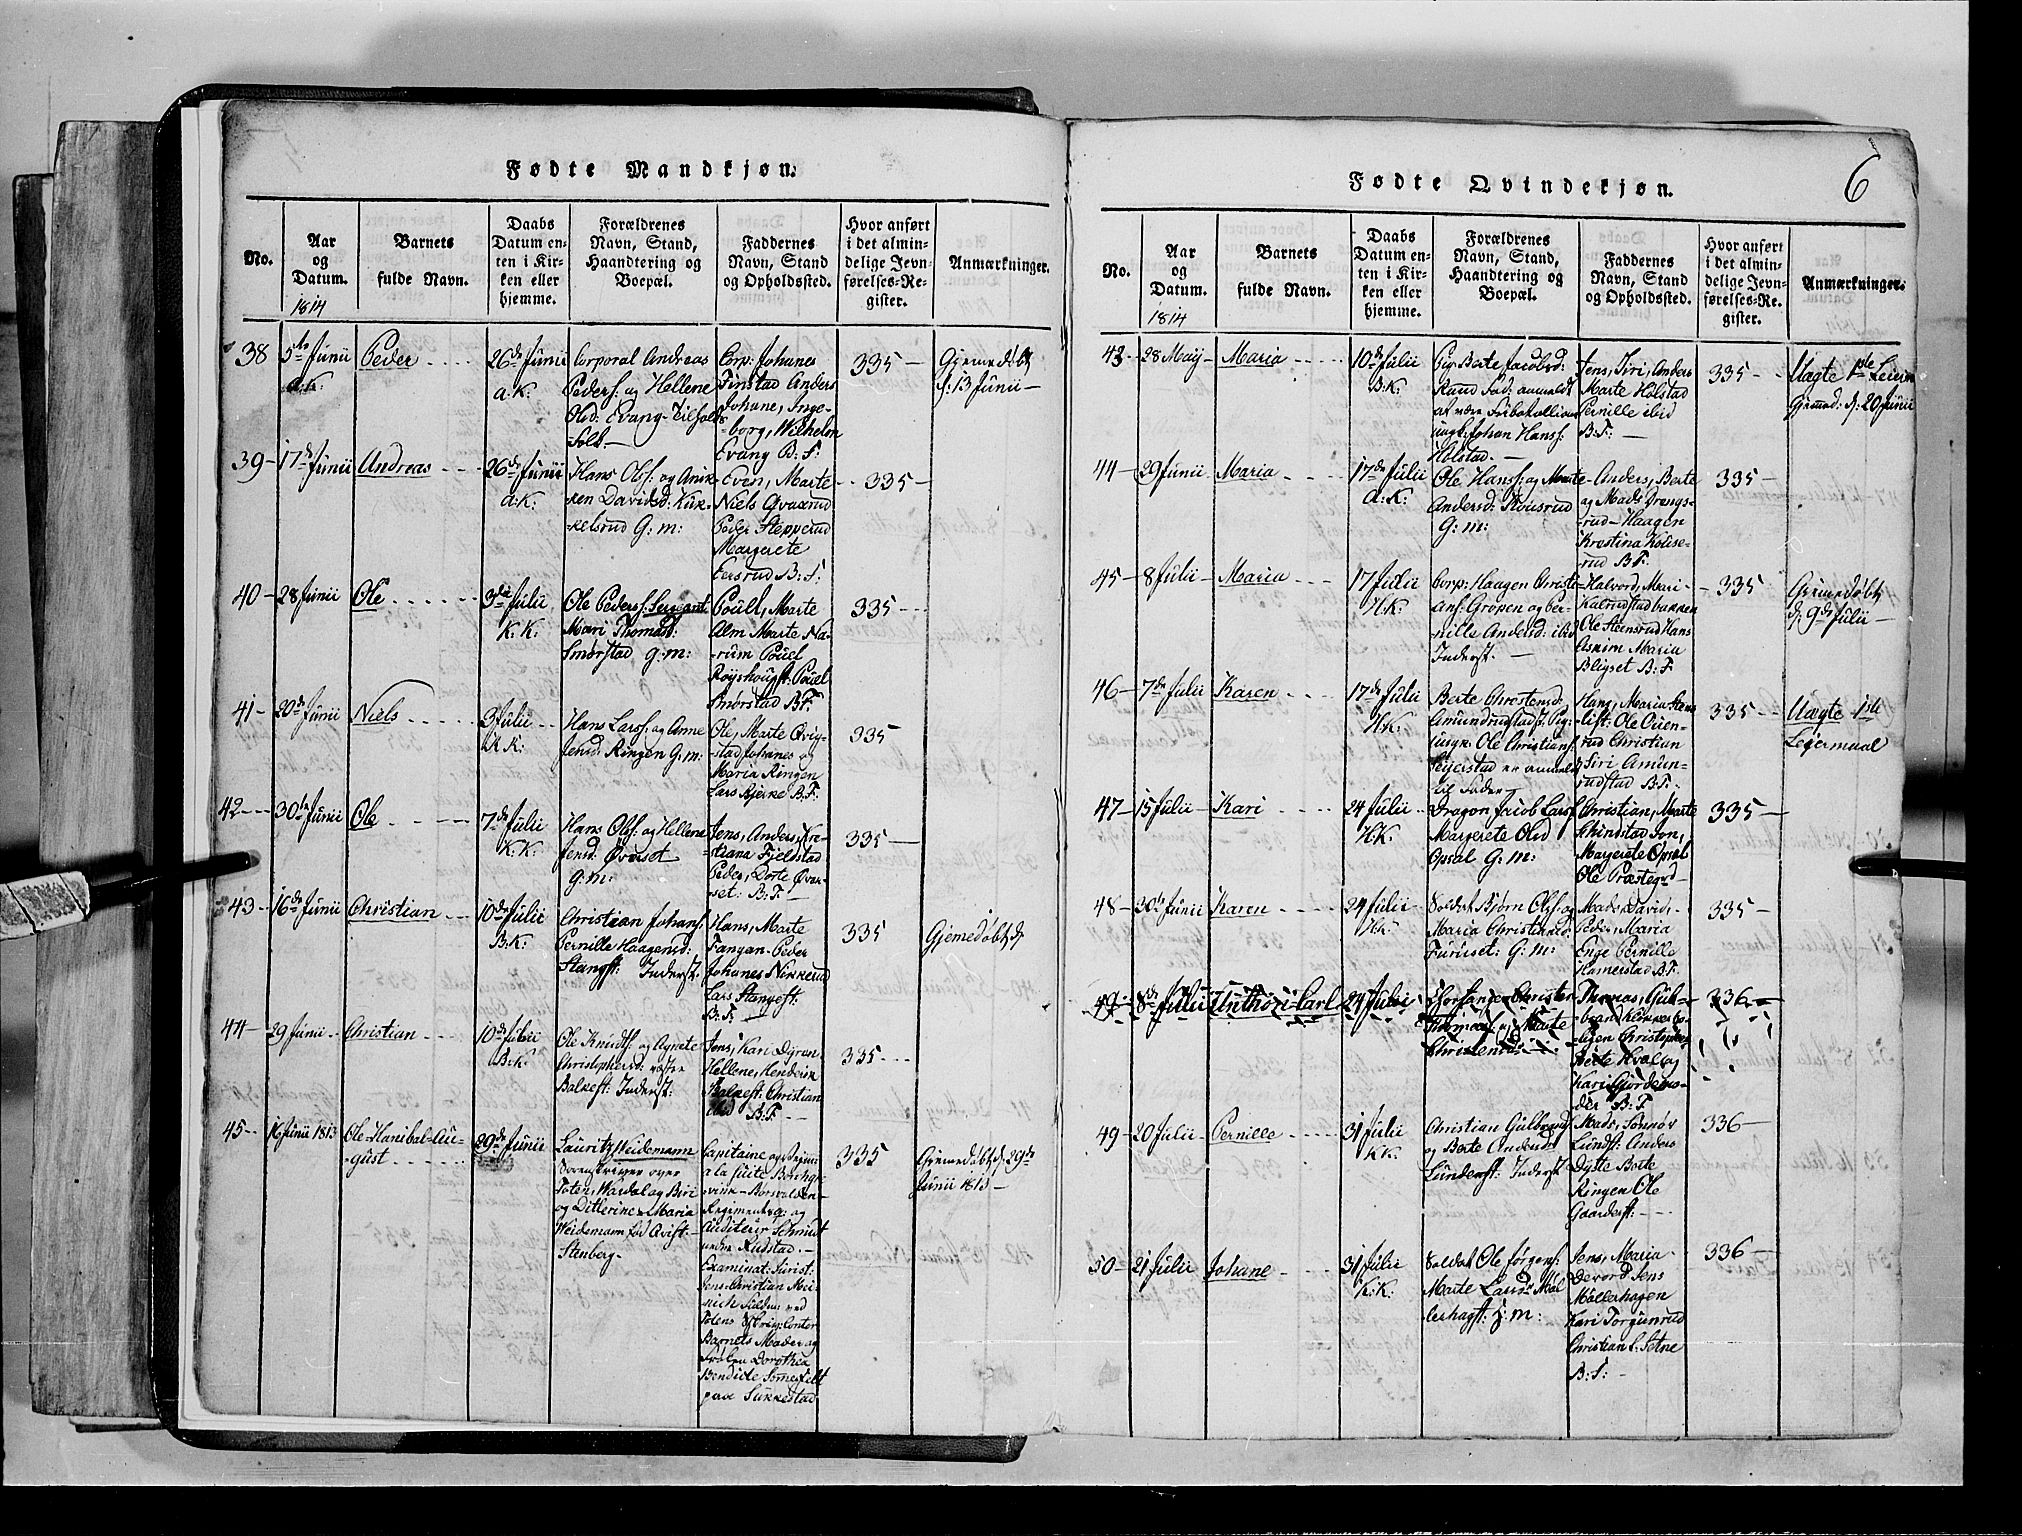 Fødte Mandkjøn.
No.
Aar
og
Datum.
1814
Barnets
fulde Navn.
Daabs
Datum en-
ten i Kir-
ken eller
hjemme.
Forældrenes
Navn, Stand,
Haandtering og
Boepæl.
Faddernes
Navn, Stand
og Opholdssted.
Hvor anført
i det almin-
delige Jevn-
førelses-Re-
gister.
Anmærkninger.
38
5te Junii
Peder
26de Junii
a.K.
Corporal Andreas
Peders: og Hellene
Olsd: Evang-
Corp: Johanes
Finstad Anders
Johane, Inge-
borg, Wilhelm
Evang B: F:
335
Gjemedøbt
d: 13 Junii
39
17de Junii
Andreas
26de Junii
a:K:
Hans Olss: og Anik-
ken Davidsd: Kük-
kelsrud G: m:
Even, Marte
Niels Qvaarud
Peder Stepperud
Margrete
Eersrud B: F:
335
40
28 Junii
Ole
3die Julii
K. K.
Ole Peders: Sergeant
Mari Thomasd:
Smørstad g: m:
Pouel, Marte
Alm Marte Na-
rum Pouel
Røyshoupt: Pouel
Smørstad B: F:
335
41
20de Junii
Niels
3 Julii
Hans Larss: og Anne
Jensd: Ringen G: m:
Ole, Marte Qvig-
stad Johanes og
Maria Ringen
Lars Bjerke B: F:
335
42
30te Junii
Ole
7de Julii
K: K:
Hans Olss: og Hellene
Jensd: Øverset
G: m:
Jens, Anders, Kre-
stiana Fjeldstad
Peder, Dorte Øver-
set: B: F:
335
43
16de Junii
Christian
10de Julii
B: K:
Christian Johans:
Pernille Haagensd:
Stangst: Inderst.
Hans, Marte
Fangan Peder
Johanes Nikkerud
Lars Stangest:
B: F:
335
Gjemedøbt d:
44
29 Junii
Christian
10de Julii
B: K:
Ole Knudts: og Agnete
Christophersd: vestre
Balkest: Inderst.
Jens, Kari Dyren
Hellene, Henderik
Balkest: Christian
ibid B: F:
335
45
16 Junii 1813
Ole Hanibal Au-
gust
29de Junii
Lauritz Weidemann
Sorenskriver over
Toten, Wardal og Biri
og Ditlerine Maria
Weidemann fød
Stenberg.
Capitaine og Regim:
a la suite Beichgr-
vink - Borsvolden
Regiments q: og
Auditeur Schmidt
nedre Rudstad.
Examinat: Jurist:
Jens Christian Mei-
nich Sidden: ved
Totens Skriv: Contor
Barnets Moder og
Frøken Dorothea
Bendicte Somerfeldt
paa Sukkestad
335
Gjemedøbt d: 29de
Junii 1813
Fødte Qvindekjøn.
6
No.
Aar
og
Datum.
1814
Barnets
fulde Navn.
Daabs
Datum en-
ten i Kir-
ken eller
hjemme.
Forældrenes
Navn, Stand,
Haandtering og
Boepæl.
Faddernes
Navn, Stand
og Opholdssted.
Hvor anført
i det almin-
delige Jevn-
førelses-Re-
gister.
Anmærkninger.
43
28 Maij
Maria
10de Julii
B: K:
Pig: Berte Jacobsd:
Rand Fad: anmeldt
at være
ungk: Johan Hans:
Holstad.
Jens, Siri, Anders
Marte Holstad
Pernille ibid
B: F:
335
Uægte 1ste Leierm
Gjemed: d: 20 Junii
44
29 Junii
Maria
17de Julii
a: K:
Ole Hans: og Marte
Andersd: Kousrud
G: m:
Anders, Berte
og Mads Drengs-
rud Haagen
Krestina Kouse-
rud B: F.
335
45
8 Julii
Maria
17 Julii
H: K:
Corp: Haagen Christi-
ans: Gropen og Per-
nille Andersd: ibid
Inderst.
Halvord, Mari
Kalrudstadbakken
Ole Steensrud Hans
Askim Maria
Bligset B: F.
335
Gjemedøbt
d: 9de Julii
46
7de Julii
Karen
17de Julii
H: K:
Berte Chrestensd:
Amundrudstad: Pig:
Ungk: Ole Christians:
Seijerstad er anmeldt
til Fader
Hans, Maria
Ole Ouen-
rud Christian
Siri Amun-
rudstad B: F.
335
Uægte 1ste
Leiermaal
47
15 Julii
Kari
24 Julii
H: K:
Dragon Jacob Lars:
Margrete Olsd
Opsal G: m:
Christian, Marte
Schindstad Jon,
Margrete Opsal
Ole Præstegrd
335
48
30te Junii
Karen
24 Julii
H: K:
Soldat Bjørn Olss: og
Maria Christiansd:
Furuset: G: m:
Mads, David,
Peder, Maria
Enge Pernille
Hamerstad B: F.
335
49
8de Julii
Anthon Carl
24 Julii
Christen
Thomæs: og Marte
Christensd:
Thomas, Gul-
brand Kirkebo-
ligen Christopher
Berte Hval og
Kari Gjordemo-
der B: F.
336
49
20 Julii
Pernille
31 Julii
K K:
Christian Gulbrands:
og Berte Andersd:
Lundest: Inderst
Mads, Tonnør
Lundst: Anders
Dyste Berte
Ringen Ole
Gaardest:
336
50
21 Julii
Johane
31 Julii
K: K:
Soldat Ole Jørgens:
Marte Larsd: Møl
lerhagst: g: m:
Jens, Maria
Devord Jens
Møllerhagen
Kari Torgunrud
Christian S. Setne
B: F:
336